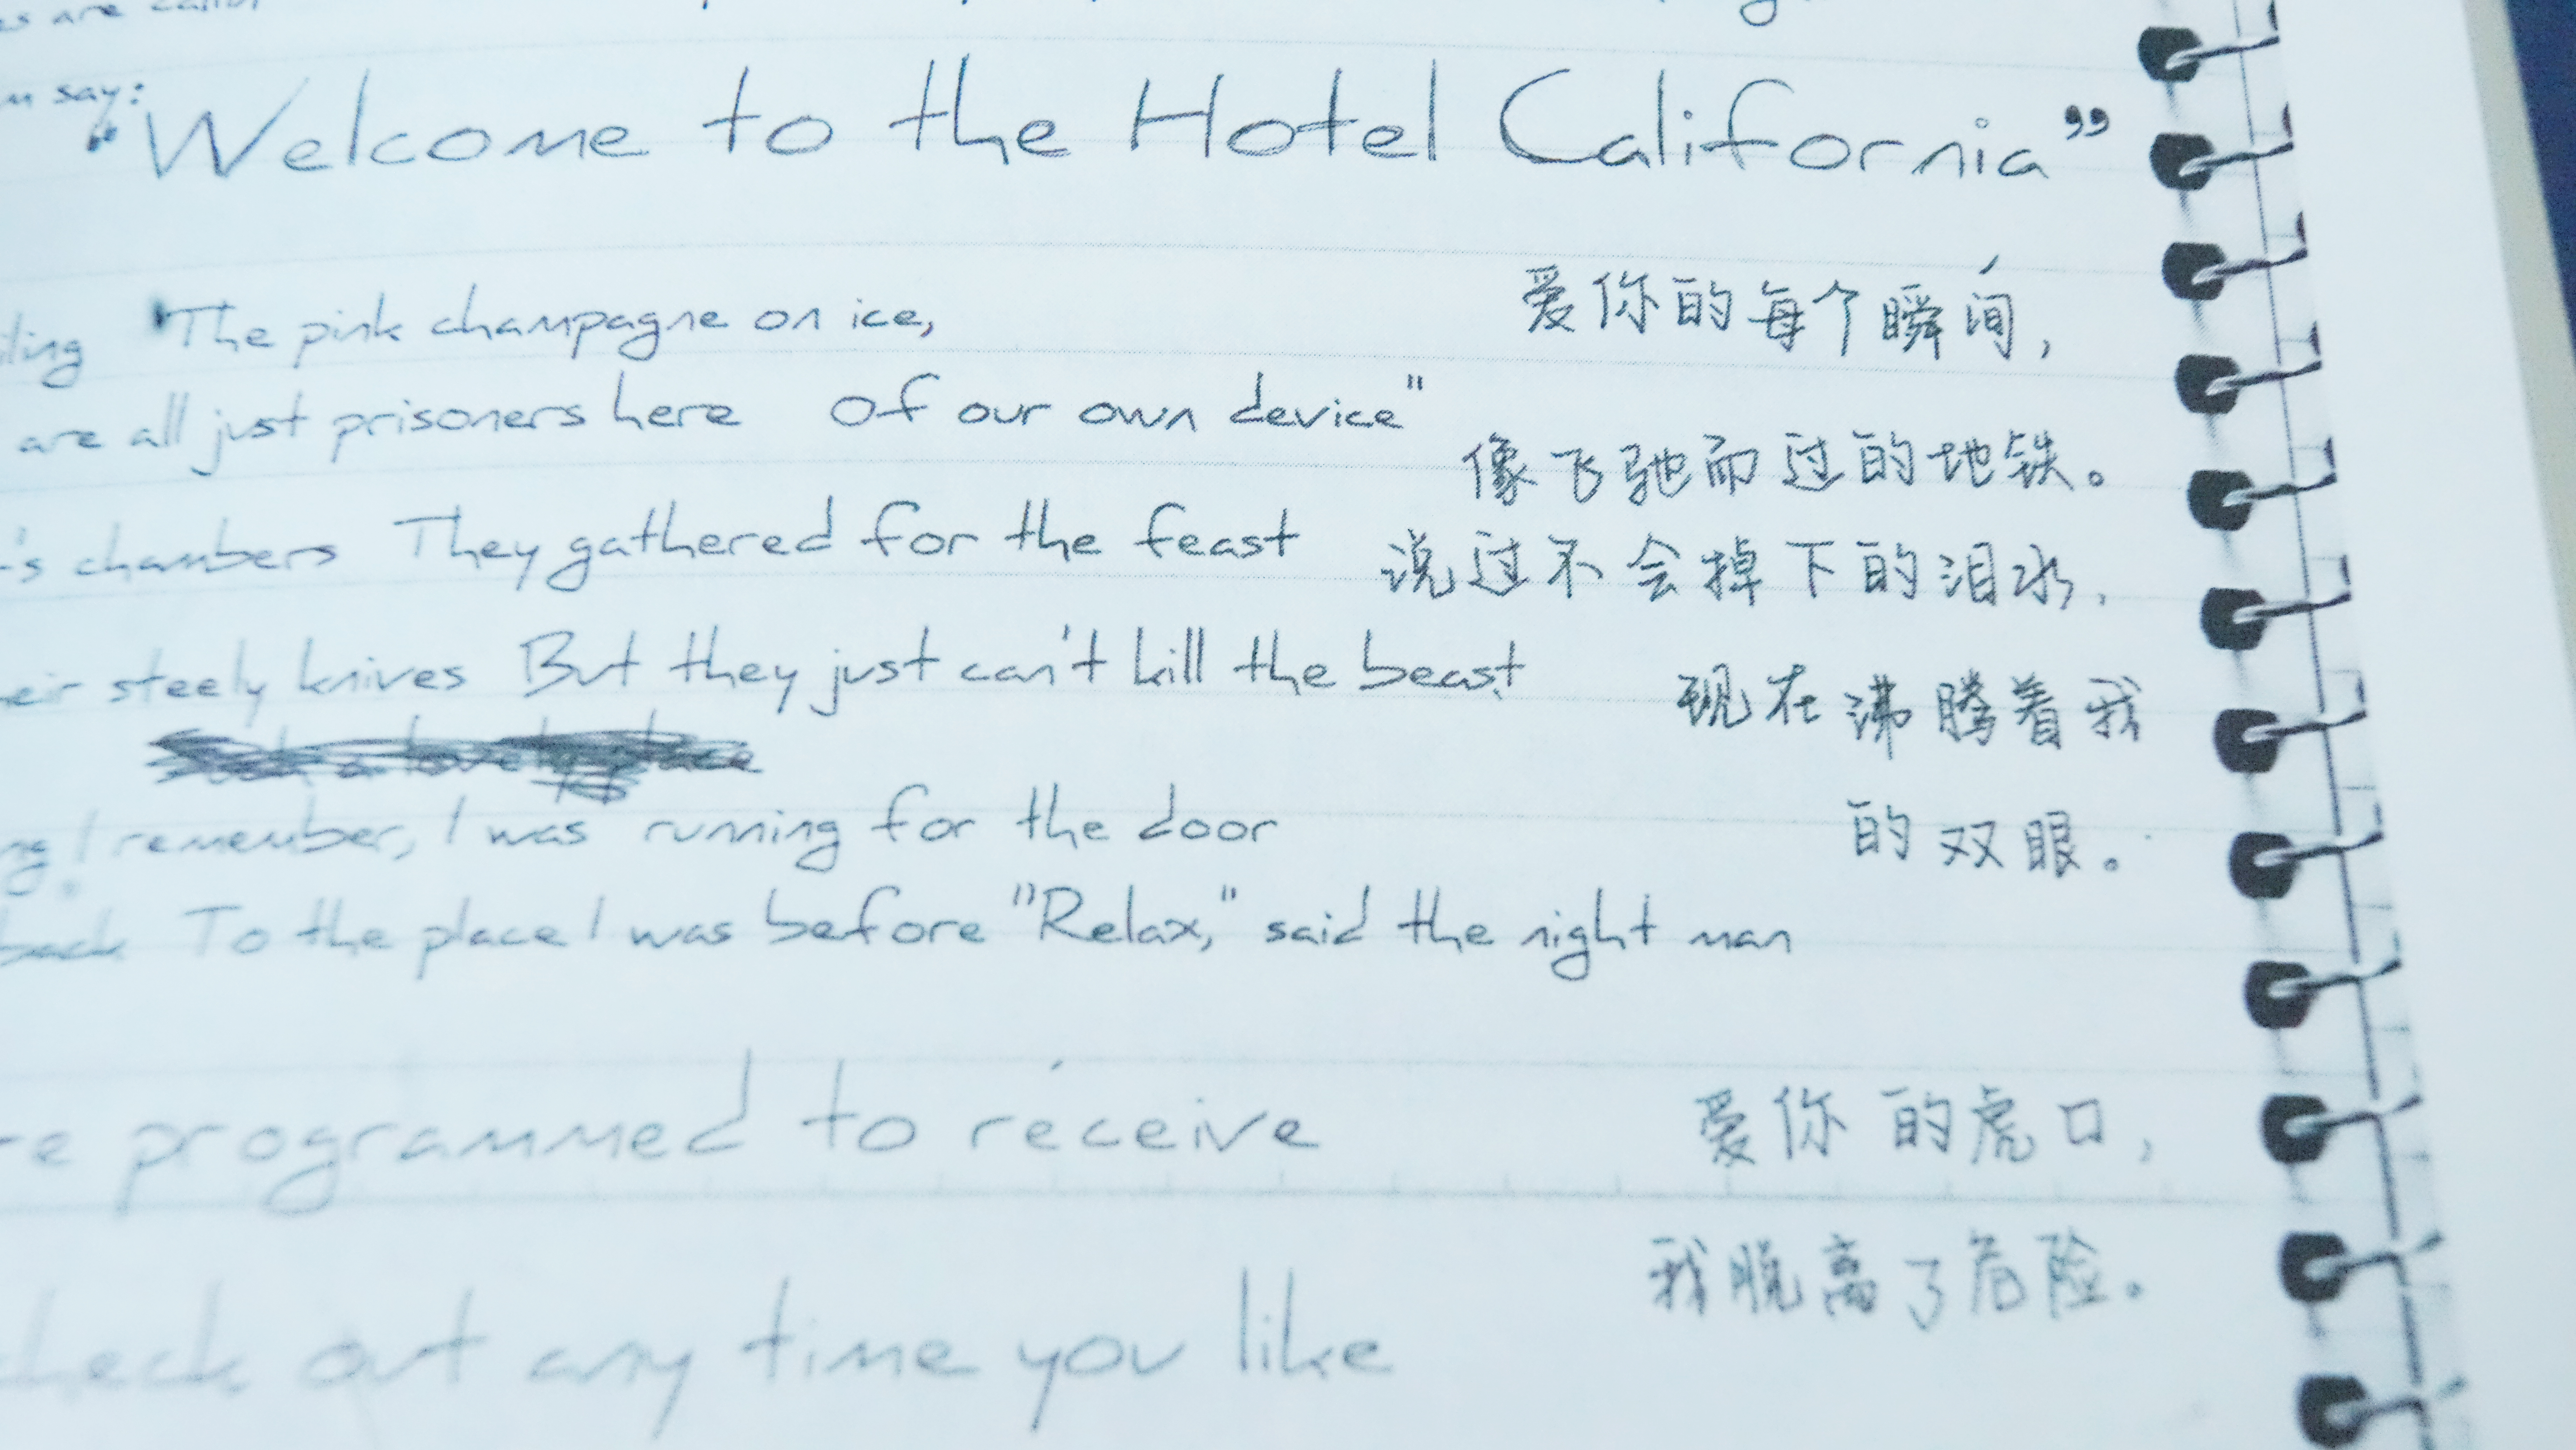 say:
"Welcome to the Hotel California"
The pink champagne on ice,
爱你的每个瞬间,
are all just prisoners here Of our own device"
像飞驰而过的地铁。
's chambers They gathered for the feast
说过不会掉下的泪水,
steely knives But they just can't kill the beast
现在沸腾着我
的双眼。
I remember, I was running for the door
back To the place I was before "Relax," said the night man
programmed to receive
爱你的虎口,
我脱离了危险。
check out any time you like